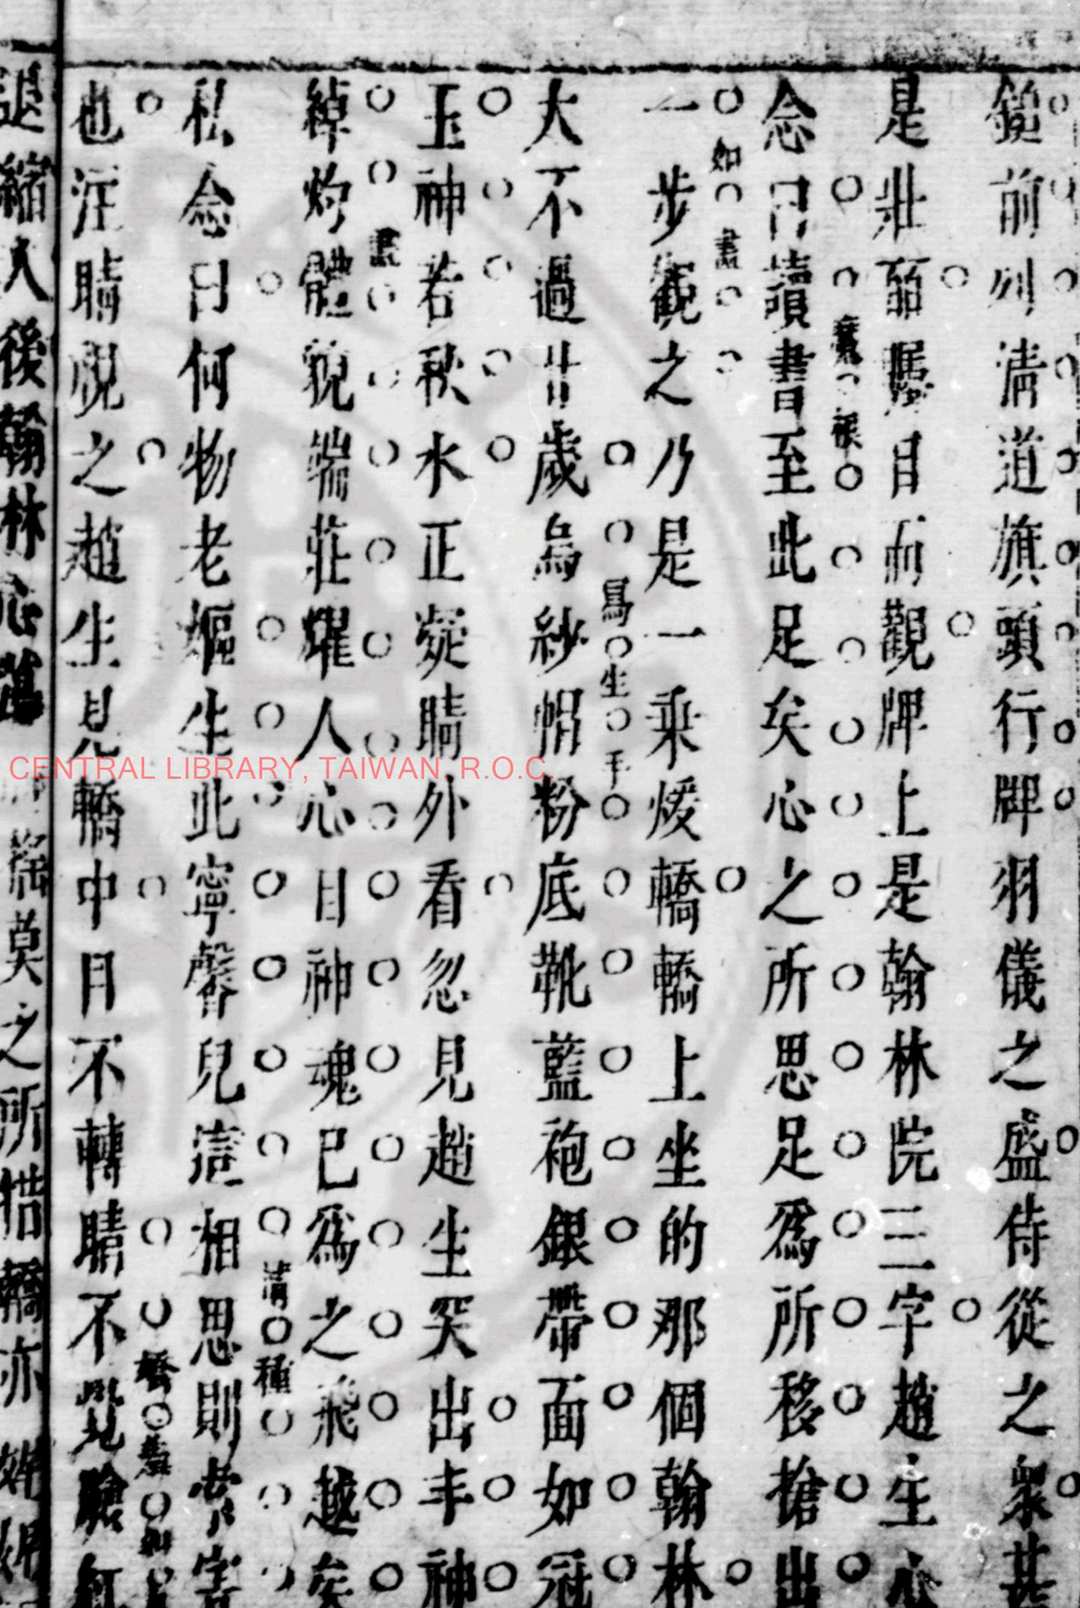 前列清道旗頭行牌羽儀之盛侍從之衆甚
是壯麗矚目而觀牌上是翰林院三字趙生心
念曰讀書至此足矣心之所思足爲所移搶出
一步觀之乃是一乘煖轎轎上坐的那個翰林
大不過廿歲烏紗帽粉底靴藍袍銀帶面如冠
玉神若秋水正凝睛外看忽見趙生笑出丰神
綽灼體貌端莊耀人心目神魂已爲之飛越矣
私念曰何物老嫗生此寧馨兒這相思則索害
也注睛視之趙生見轎中目不轉睛不覺臉紅
退縮人後翰林心
莫之所措轎亦
如
畫
畫
魔
根
爲
生
手
清
種
CENTRAL LIBRARY, TAIWAN R.O.C.